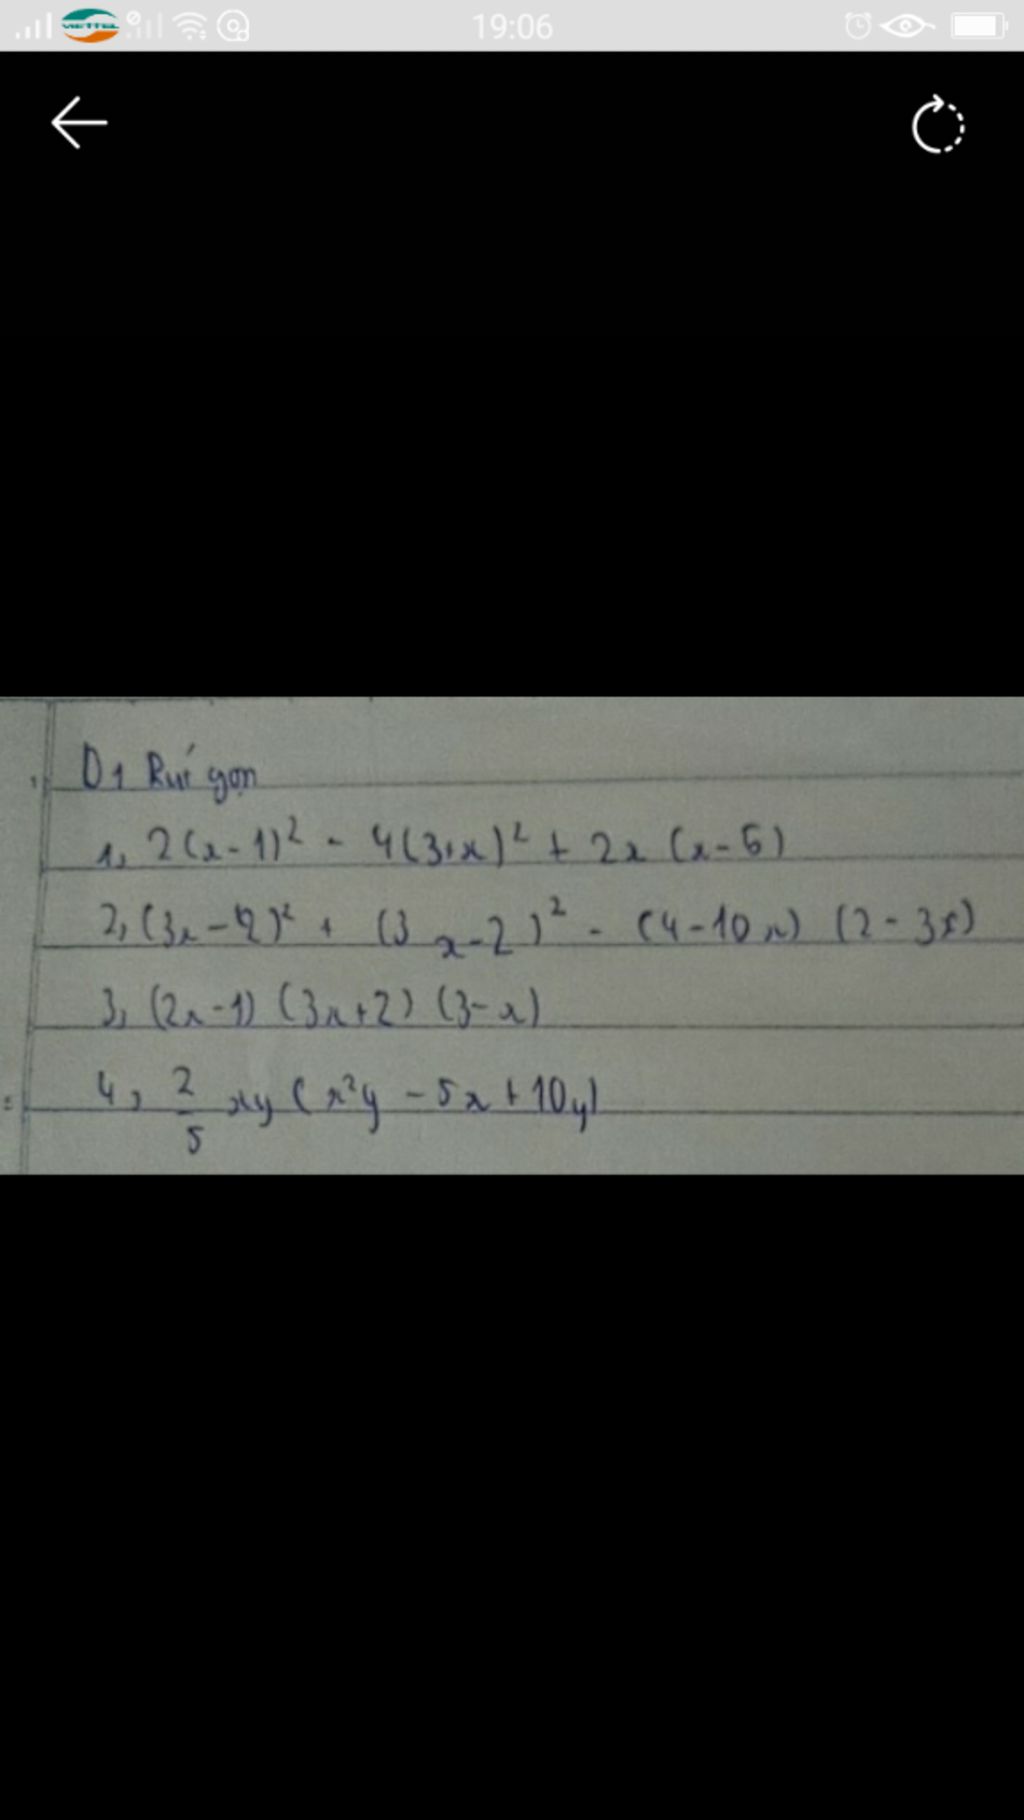 VIETTEL 19:06
D1 Rút gọn
1, 2(x-1)² - 4(3+x)² + 2x (x-5)
2, (3x-2)² + (3 x-2)² - (4-10x) (2-3x)
3, (2x-1) (3x+2) (3-x)
4, 2/5 xy (x²y - 5x + 10y)